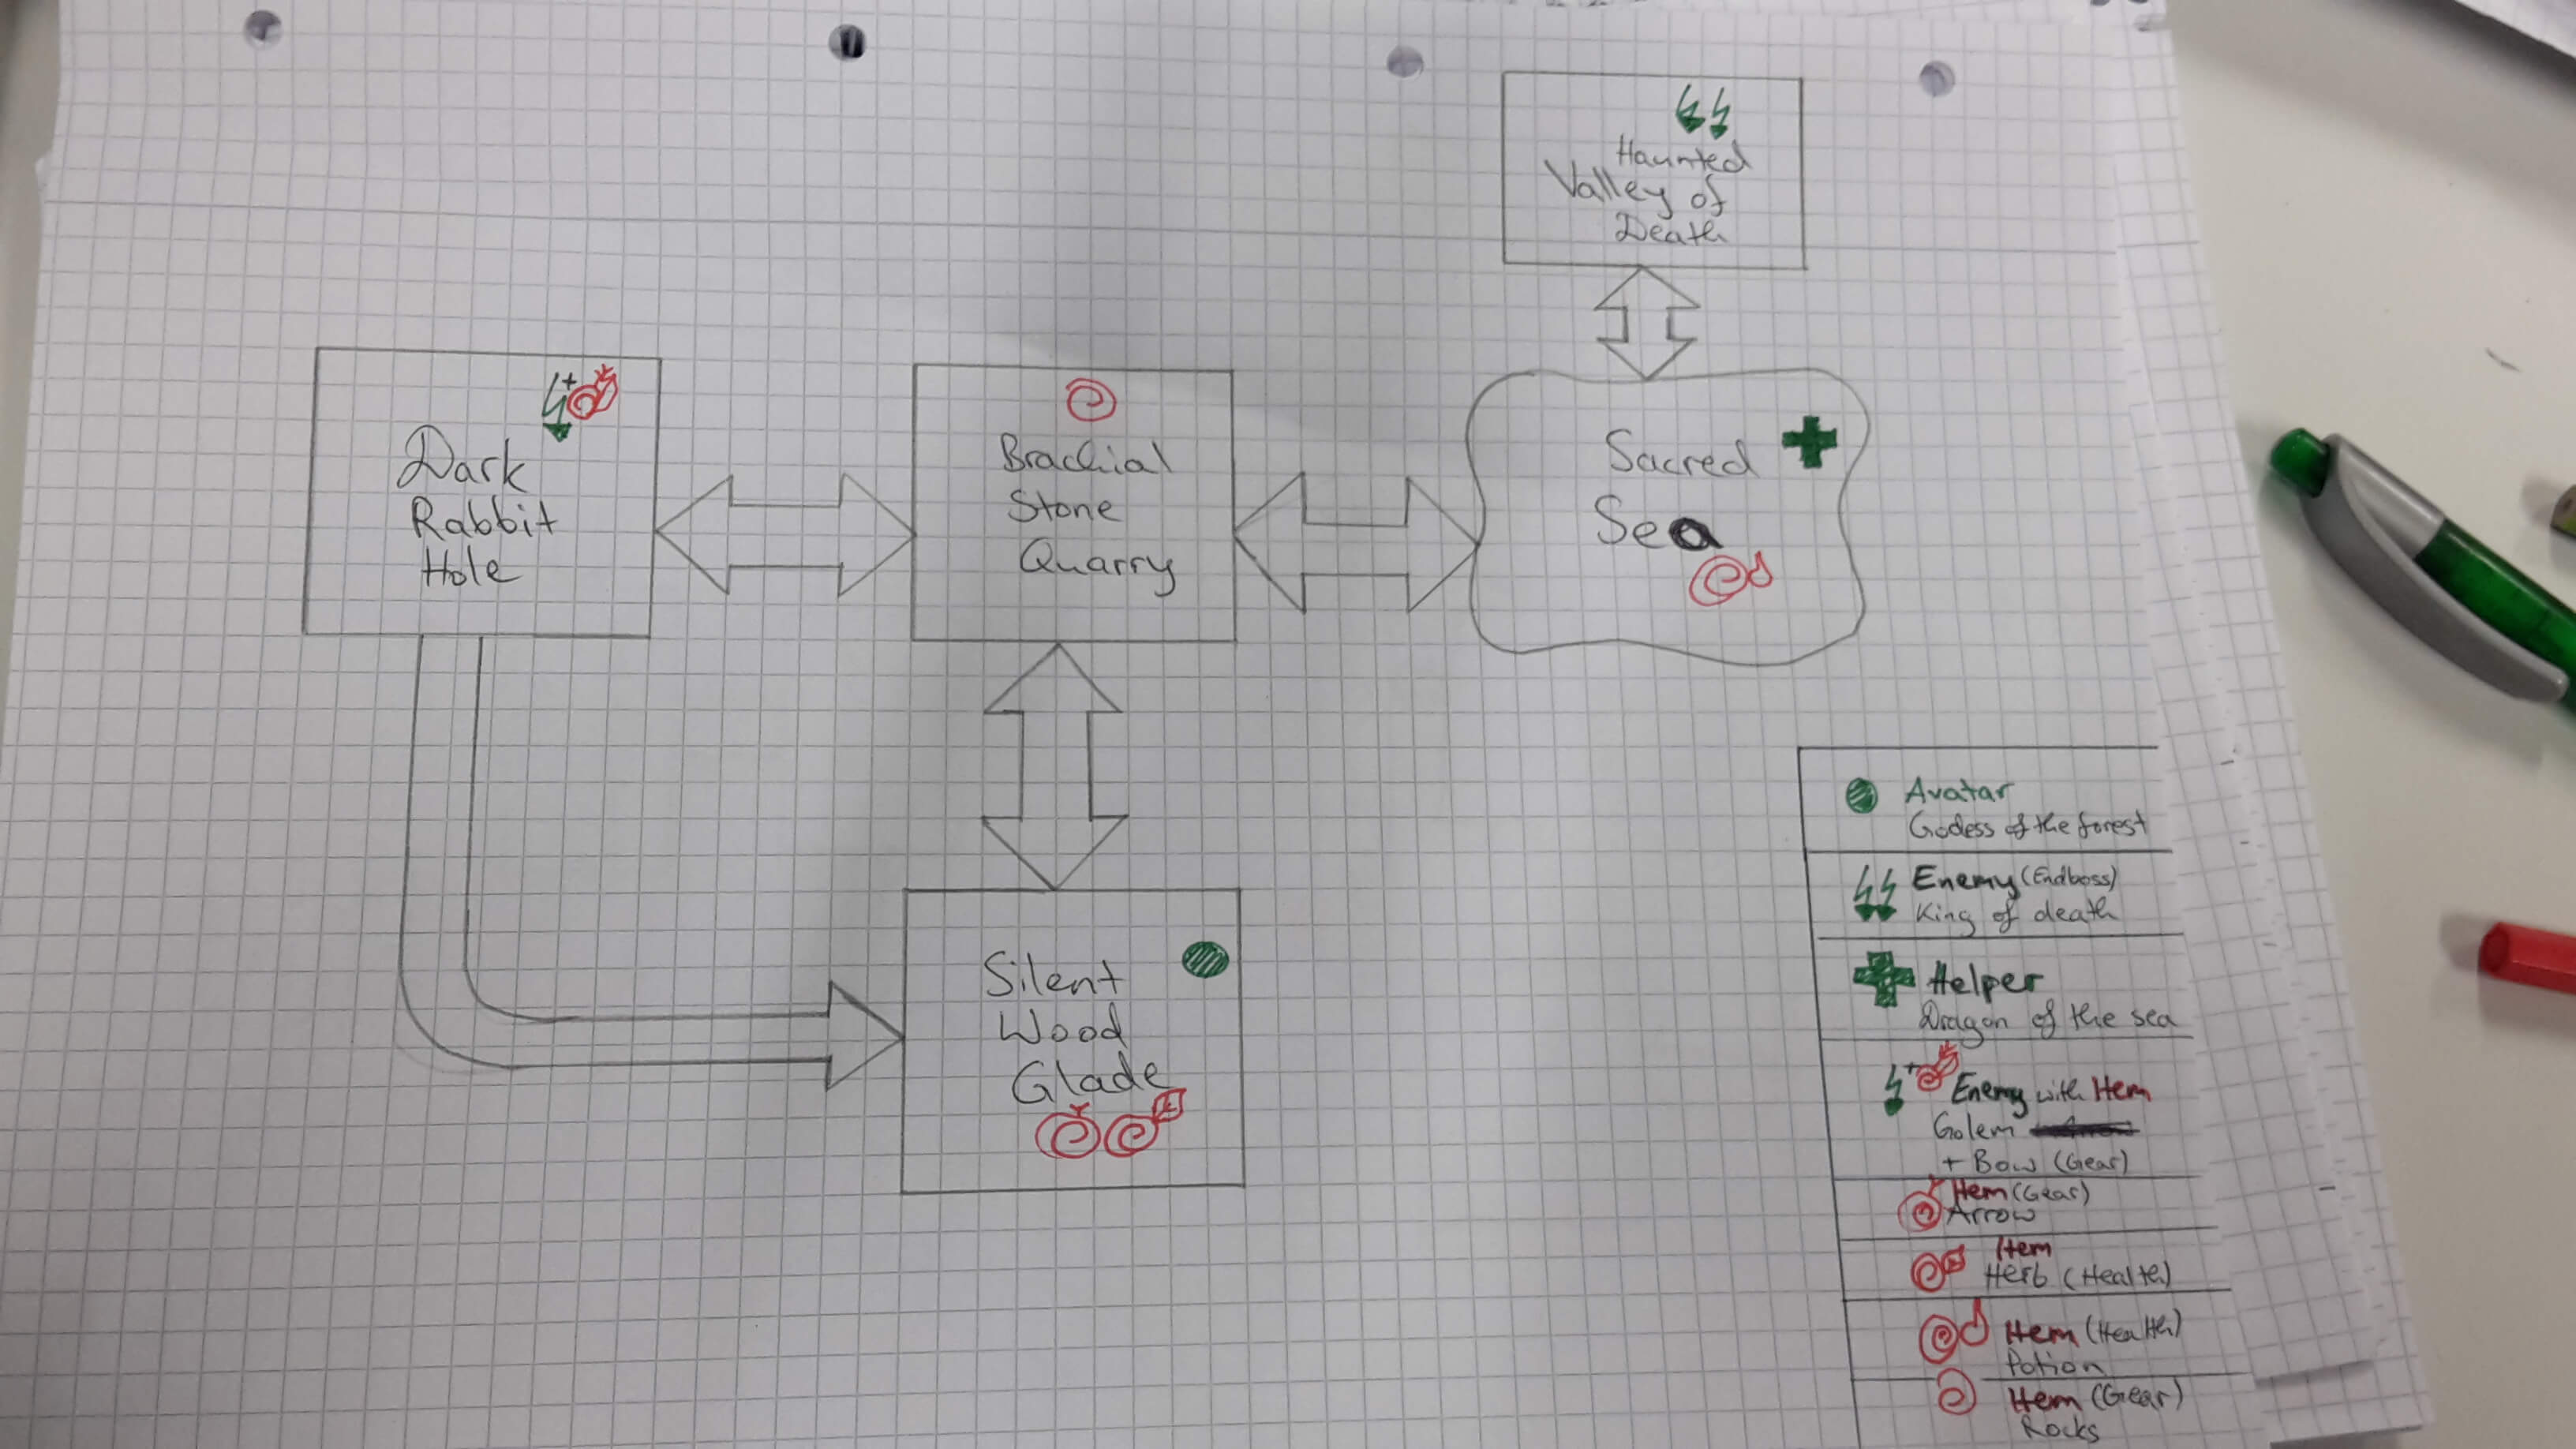 Haunted
Valley of
Death
Dark
Rabbit
Hole
Brachial
Stone
Quarry
Sacred
Sea
Silent
Wood
Glade
Avatar
Godess of the forest
Enemy (Endboss)
King of death
Helper
Dragon of the sea
Enemy with Item
Golem
+ Bow (Gear)
Item (Gear)
Arrow
Item
Herb (Health)
Item (Health)
Potion
Item (Gear)
Rocks